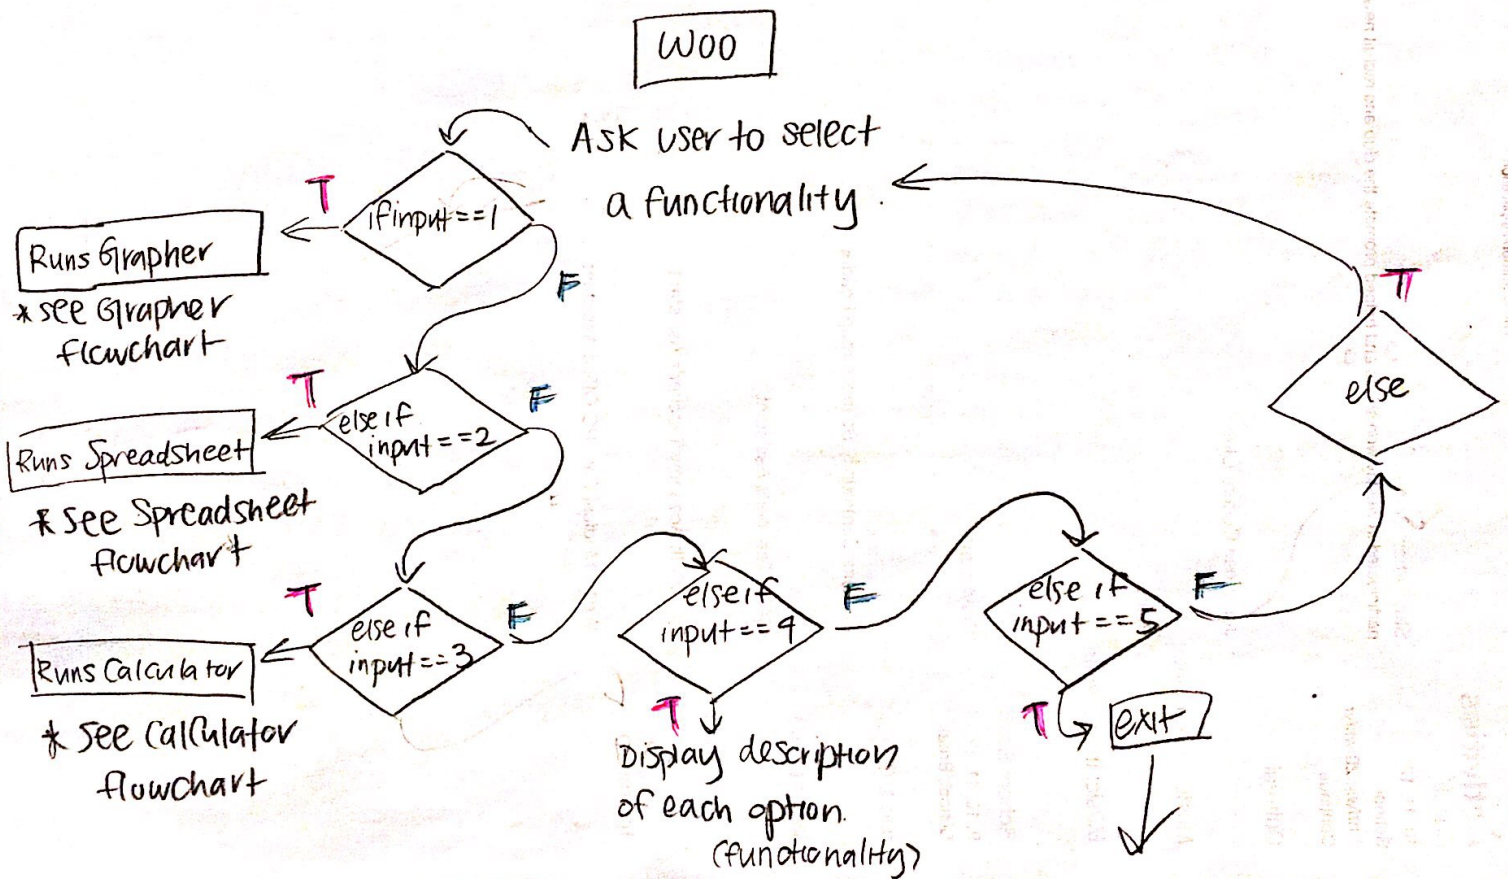 Woo
Ask user to select
a functionality.
T
if input==1
Runs Grapher
* see Grapher
flowchart
F
T
else if
input==2
F
Runs Spreadsheet
* See Spreadsheet
flowchart
T
else if
input==3
F
Runs Calculator
* See Calculator
flowchart
else if
input==4
F
T
Display description
of each option.
(functionality)
else if
input==5
F
T
exit
else
T